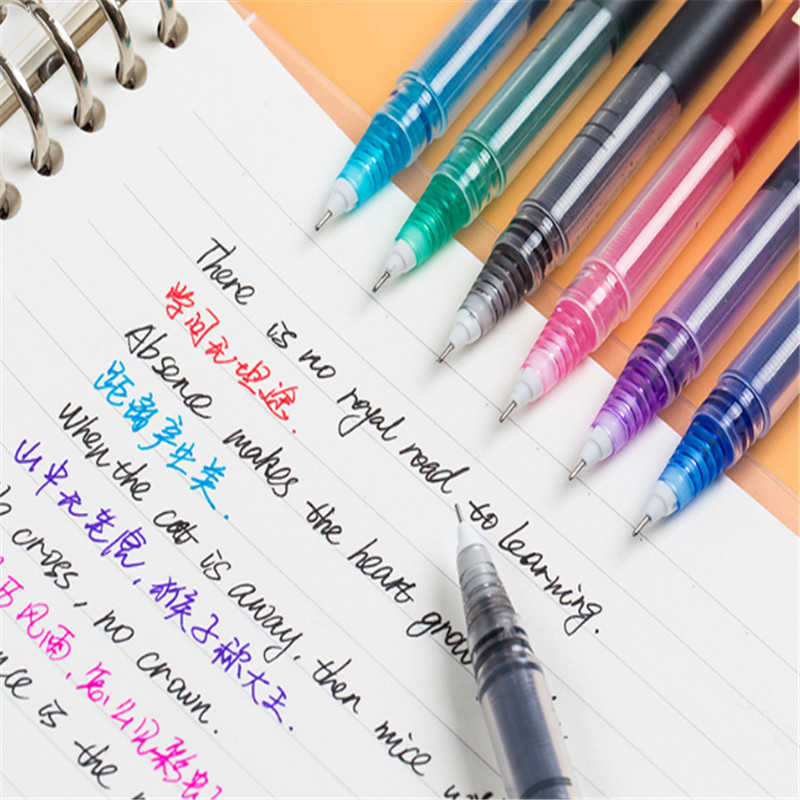 There is no royal road to learning.
学问无坦途.
Absence makes the heart grow
距离产生美.
When the cat is away, then mice
山中无老虎,猴子称大王.
cross, no crown.
风雨,怎么见彩虹
is the